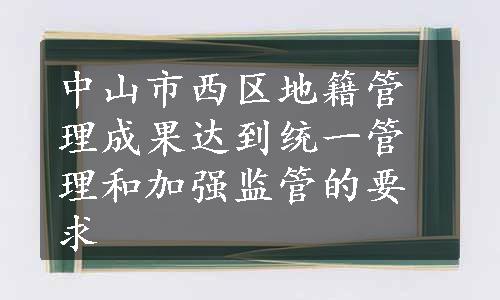 中山市西区地籍管
理成果达到统一管
理和加强监管的要
求